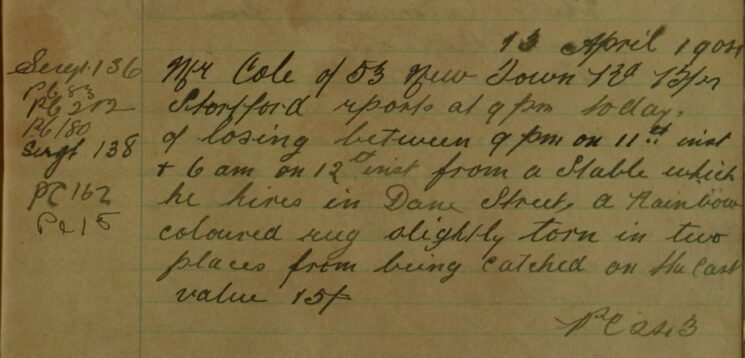 13 April 1904
Sergt 136
PC 83
PC 272
PC 180
Sergt 138
PC 162
PC 15
Mr Cole of 53 New Town Rd B/s
Stortford reports at 9 pm today,
of losing between 9 pm on 11th inst
+ 6 am on 12th inst from a Stable which
he hires in Dane Street, a Rainbow
coloured rug slightly torn in two
places from being catched on the Cart
value 15/-
PC 243